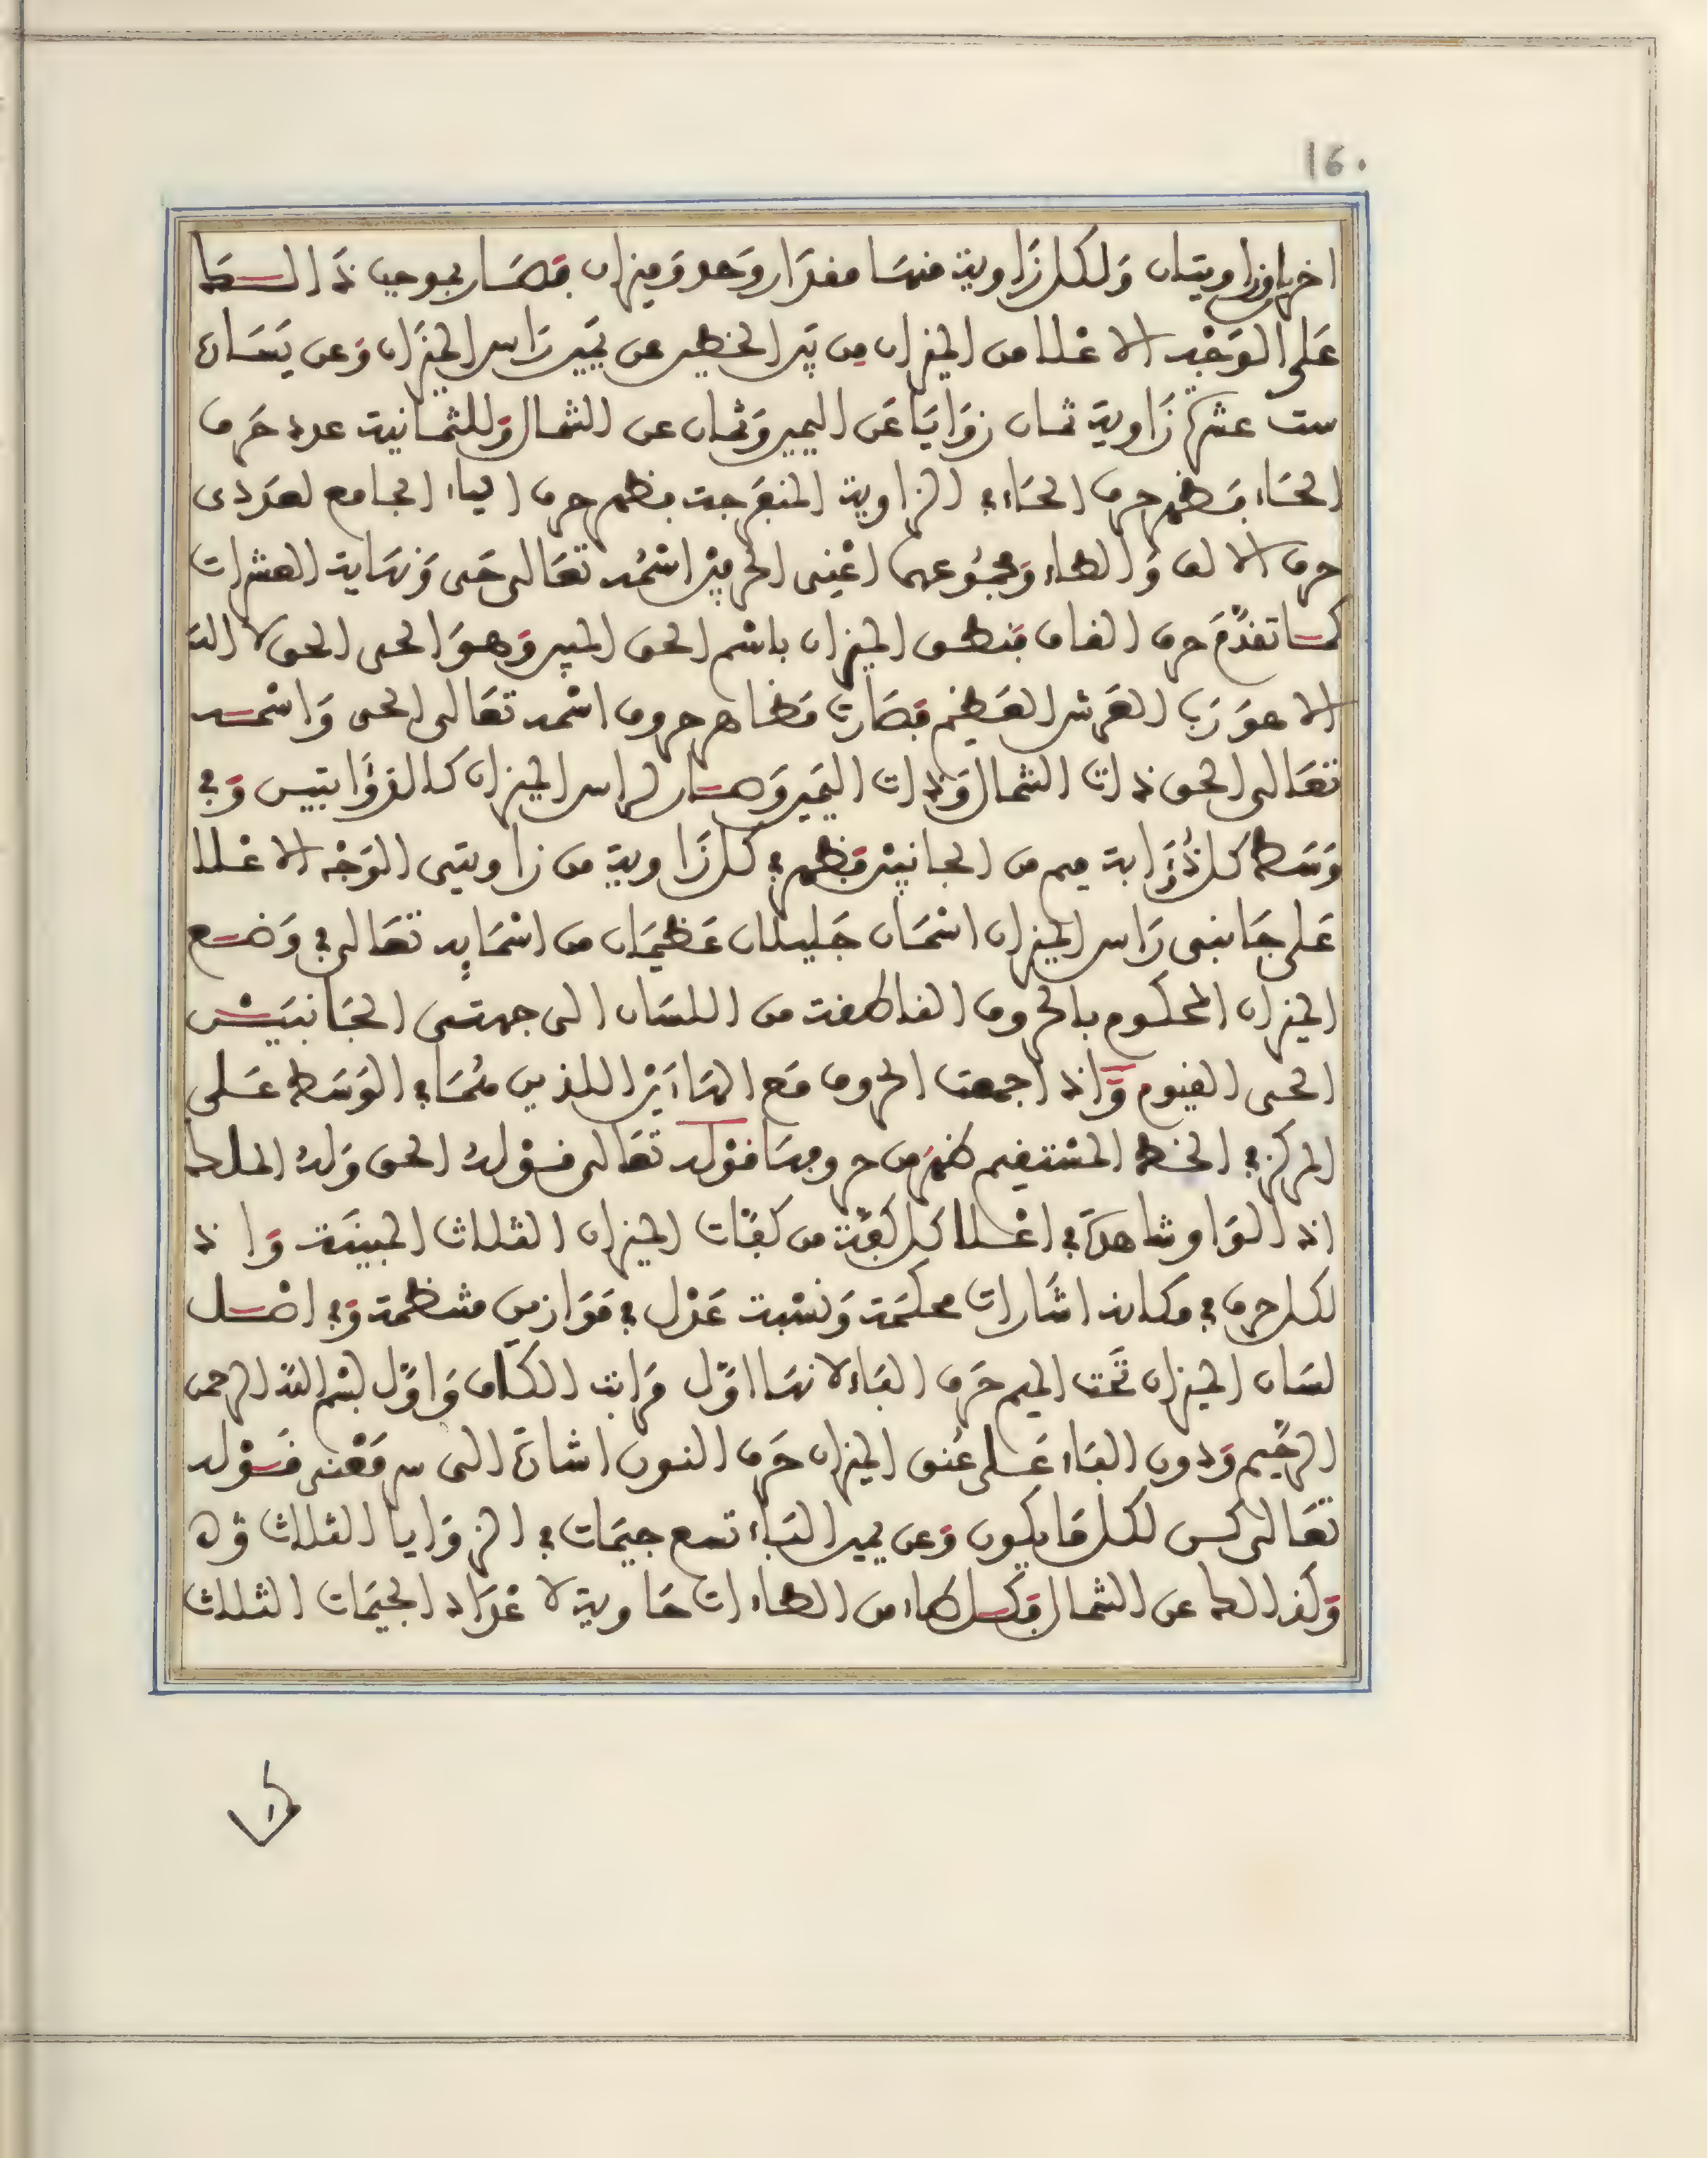 160
اخراوزاويتان وَلكل زَاوية منهَا مقدَار وَحد وَميزان فصَار بموجب ذَالكَ
عَلى الوَجْه الاعْلا من الميزان مِن بَين الخطين عن يَمين رَاس الميزَان وَعن يَسَاره
ست عشرة زَاوية ثمان زوَايَا عَن اليمين وَثمان عن الشمال وَللثمانية عدد حَرف
الحَاء فظهر حرف الحَاء في الزاوية المنفَرجة فظهر حرف الياء الجامع لعَددى
حرف الالف وَالطاء وَمجمُوعهما اعْنِى الحرفيْن اسْمُه تعَالى حَى وَنهَاية العشرات
كما تقدَّمَ حرف القاف فنطق الميزان باسْم الحق المبين وَهوَ الحى الحق لا اله
الا هوَ رَب العَرش العَظيم فصَارت مَظاهر حروف اسْمه تعَالى الحى وَاسْمه
تعَالى الحق ذات الشمال وَذات اليَمين وَصار لراس الميزان كالذؤَابتين وَفي
وَسَط كل ذُؤَابة ميم من الجانبيْن فظهر في كل زَاوية من زاويتى الوَجْه الاعْلا
عَلى جَانبى رَاس الميزان اسْمَان جَليلان عَظيمَان من اسْمَايِه تعَالى في وَضع
الميزان المحكوم بالحروف الناطقة من اللسَان الى جهتى الجَانبيْن
الحى القيوم وَاذا جمعت الحروف مَع الهَاءَيْن اللذين هُمَا في الوَسَط عَلى
المركز في الخط المسْتقيم ظهر من حروفهَا قوْله تعَالى قوْلهُ الحق وَلهُ الملك
اذ الوَاو شاهدَة في اعْلا كل كفَّة من كفَّات الميزان الثلاث المبيَّنة وَاذ
لكل حرف في مكانه اشَارات محكمَة وَنسْبة عَدْل في مَوَازين منتظمة وَفي اصْل
لسَان الميزان تَحْت الميم حَرف البَاء لانهَا اوَّل مرَاتب الكاف وَاوَّل بسْم الله الرحمن
الرحِيم وَدون البَاء عَلى عُنق الميزان حَرف النون اشارَة الى سر مَعْنى قوْله
تعَالى كن لكل مَا يكون وَعن يمين البَاء تسع جيمَات في الزوَايا الثلاث وَه
وَكذالك عن الشمال فكل طاء من الطاءات حَاوية لاعْدَاد الجيمَات الثلاث